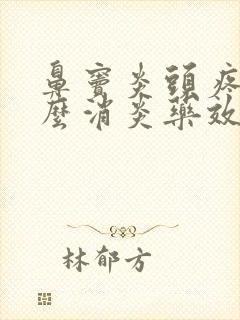 鼻竇炎頭疼
麼消炎藥效
林郁方